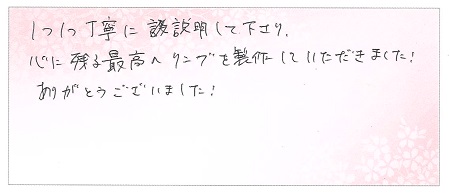 1つ1つ丁寧に説明して下さり、
心に残る最高のリングを製作していただきました!
ありがとうございました!